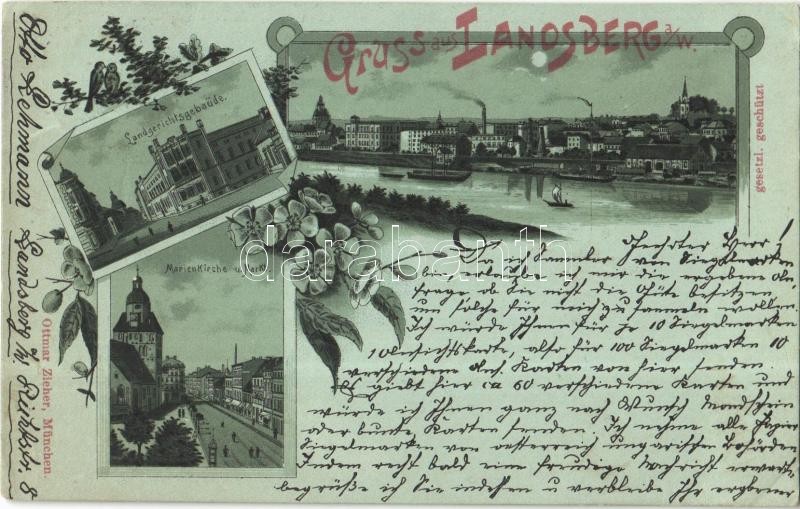 Gruss aus LANDSBERG a/W.
Landgerichtsgebäude.
Marienkirche u. Markt.
gesetzl. geschützt
Ottmar Zieher, München.
darabanth
Otto Lehmann Landsberg a/W
Geehrter Herr!
Da ich Sammler von Siegelmarken
bin erlaube ich mir die ergebene An-
frage ob Sie nicht die Güte besitzen
um solche für mich zu sammeln wollen.
Ich würde Ihnen für je 10 Siegelmarken
1 Ansichtskarte, also für 100 Siegelmarken 10
verschiedene Ans. Karten von hier senden.
Es giebt hier ca 60 verschiedene Karten und
würde ich Ihnen ganz nach Wunsch Mondschein
oder bunte Karten senden. Ich nehme alle Papier
Siegelmarken von oesterreich ungarischen Behörden
Indem recht bald eine freudige Nachricht erwarte
begrüße ich Sie indessen u verbleibe Ihr ergebener